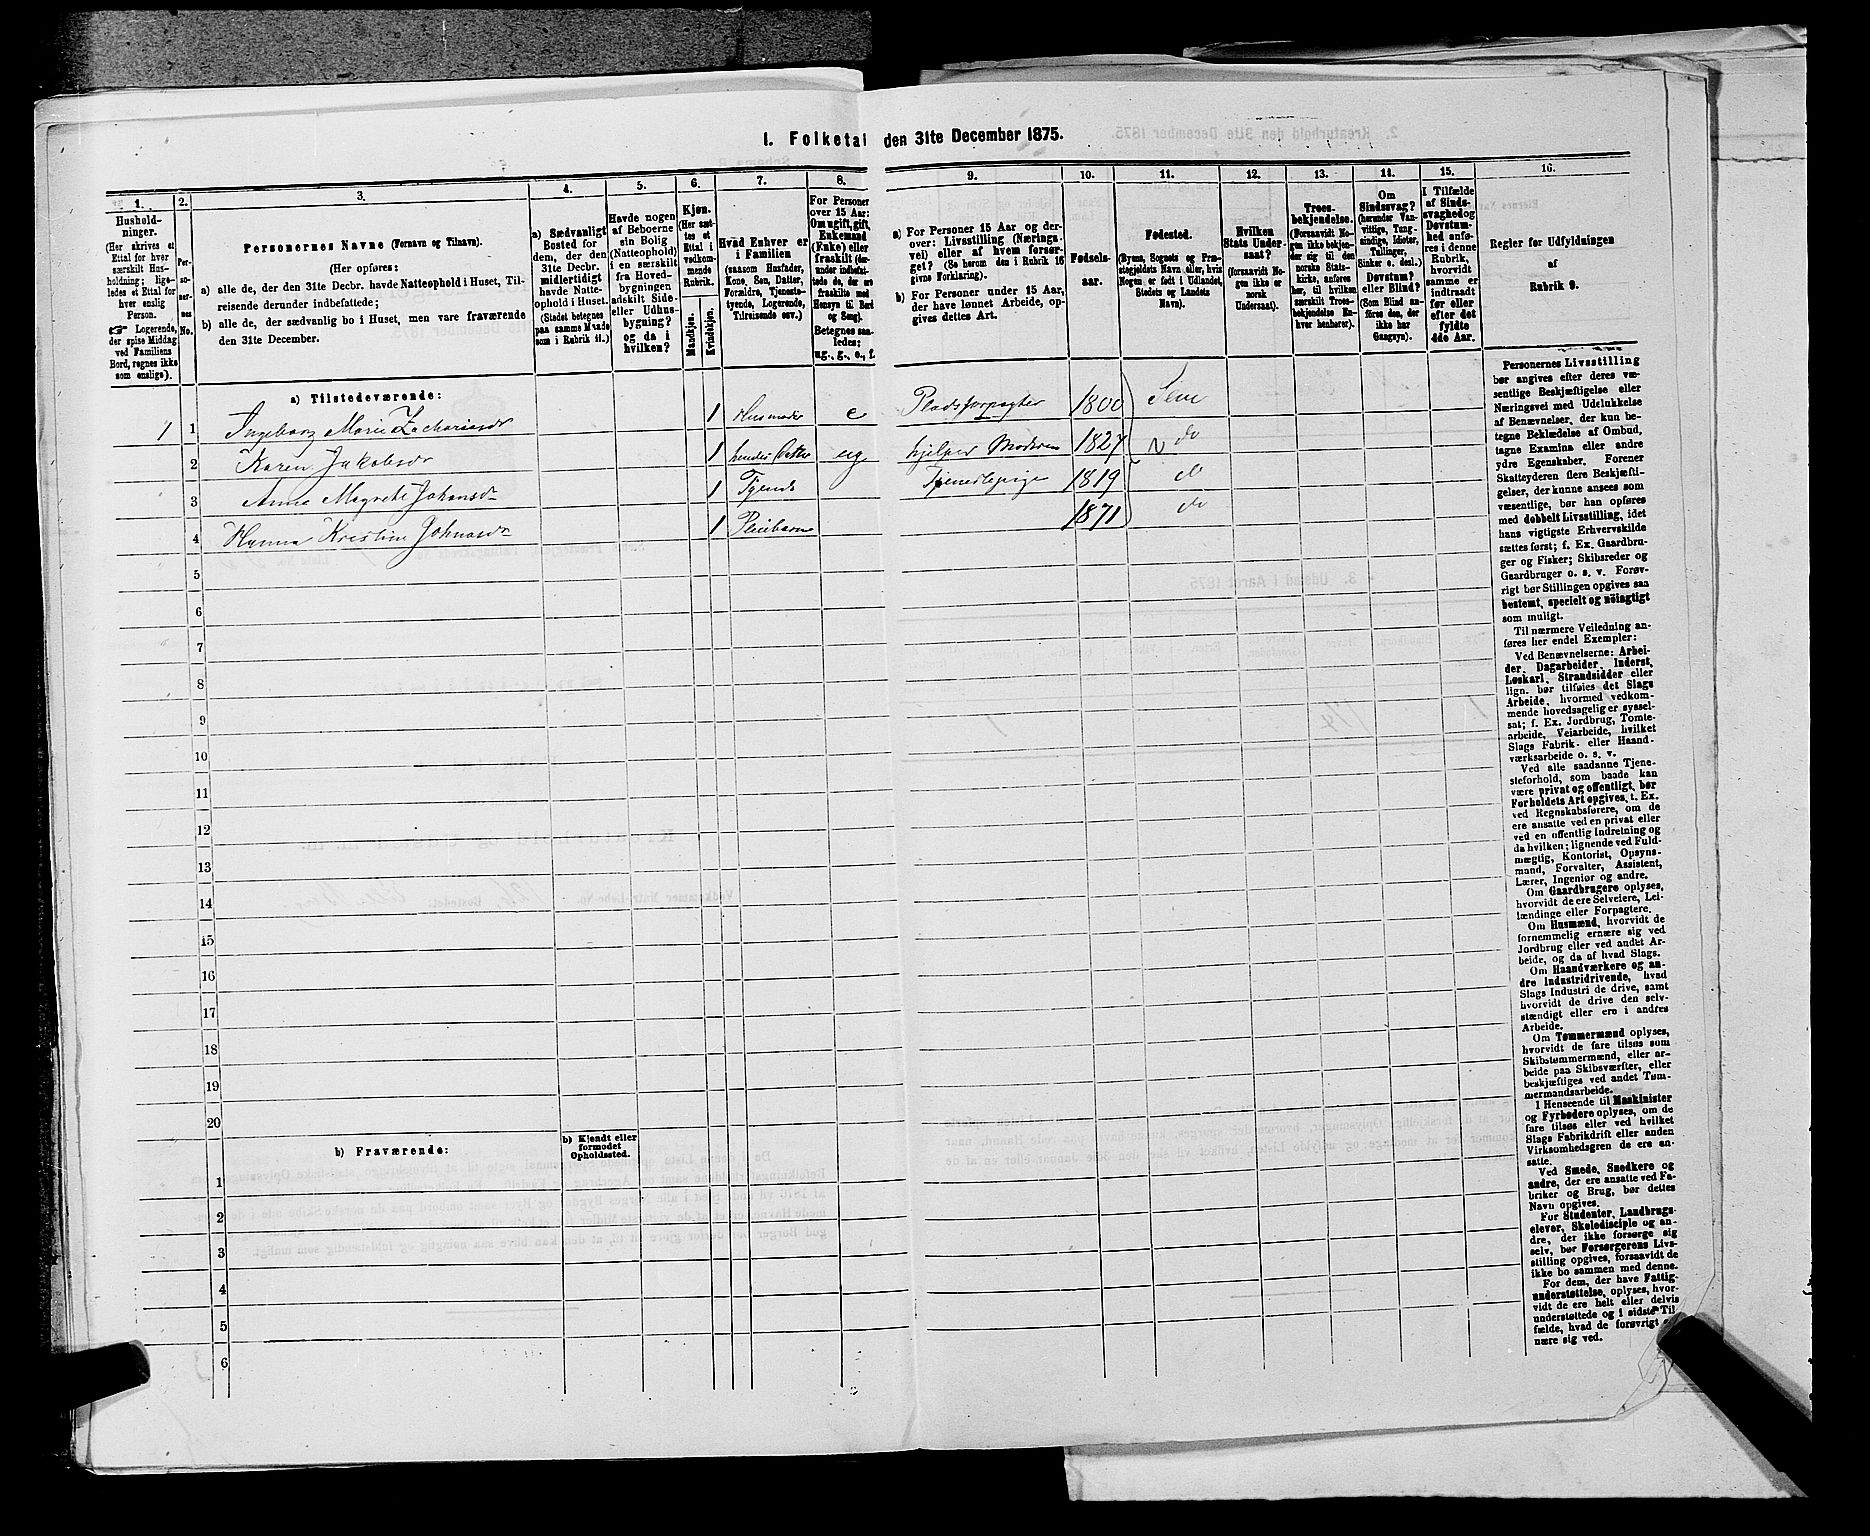 1. Folketal den 31te December 1875.
1.
Hushold-
ninger.
(Her skrives et
Ettal for hver
særskilt Hus-
holdning; lige-
ledes et Ettal for
hver enslig
Person.
☞ Logerende,
der spise Middag
ved Familiens
Bord, regnes ikke
som enslige).
2.
Per-
so-
ner-
nes
No.
3.
Personernes Navne (Fornavn og Tilnavn).
(Her opføres:
a) alle de, der den 31te Decbr. havde Natteophold i Huset, Til-
reisende derunder indbefattede;
b) alle de, der sædvanlig bo i Huset, men vare fraværende
den 31te December.
4.
a) Sædvanligt
Bosted for
dem, der den
31te Decbr.
midlertidigt
havde Natte-
ophold i Huset.
(Stedet betegnes
paa samme Maade
som i Rubrik 11.)
5.
Havde nogen
af Beboerne
sin Bolig
(Natteophold)
i en særskilt
fra Hoved-
bygningen
adskilt Side-
eller Udhus-
bygning?
og da i
hvilken?
6.
Kjøn.
(Her sæt-
tes et
Ettal i
vedkom-
mende
Rubrik.
Mandkjøn.
Kvindekjøn.
7.
Hvad Enhver er
i Familien
(saasom Husfader,
Kone, Søn, Datter,
Forældre, Tjeneste-
tyende, Logerende,
Tilreisende osv.)
8.
For Personer
over 15 Aar:
Om ugift, gift,
Enkemand
(Enke) eller
fraskilt (der-
under indbefat-
tede de, der ere
fraskilte med
Hensyn til Bord
og Seng).
Betegnes saa-
ledes:
ug., g., e., f.
9.
a) For Personer 15 Aar og der-
over: Livsstilling (Nærings-
vei) eller af hvem forsør-
get? (Se herom den i Rubrik 16
givne Forklaring).
b) For Personer under 15 Aar,
der have lønnet Arbeide, op-
gives dettes Art.
10.
Fødsels-
aar.
11.
Fødested.
(Byens, Sognets og Præ-
stegjeldets Navn eller, hvis
Nogen er født i Udlandet,
Stedets og Landets
Navn).
12.
Hvilken
Stats Under-
saat?
(forsaavidt No-
gen ikke er
norsk
Undersaat).
13.
Troes-
bekjendelse.
(Forsaavidt No-
gen ikke bekjen-
der sig til den
norske Stats-
kirke, anføres
her, til hvilken
særskilt Troes-
bekjendelse En-
hver henhører).
14.
Om
Sindssvag?
(herunder Van-
vittige, Tung-
sindige, Idioter,
Tullinger,
Sinker o. desl.)
Døvstum?
eller Blind?
(Som Blind an-
føres den, der
ikke har
Gangsyn).
15.
I Tilfælde
af Sinds-
svaghed og
Døvstum-
hed anfø-
res i denne
Rubrik,
hvorvidt
samme er
indtraadt
før eller
efter det
fyldte
4de Aar.
16.
Regler før Udfyldningen
af
Rubrik 9.
a) Tilstedeværende:
1 1 Ingeborg Marie Zachariasd 1 Husmoder e Pladsforpagter 1800 Sem
2 Karen Jakobsd 1 hendes Datter ug hjelper Moderen 1827 do
3 Anna Magrete Johansd 1 Tyende Tjenestepige 1819 do
4 Hanna Kristine Johnasd 1 Pleiebarn 1871 do
5
6
7
8
9
10
11
12
13
14
15
16
17
18
19
20
b) Fraværende:
b) Kjendt eller
formodet
Opholdssted.
1
2
3
4
5
6
Personernes Livsstilling
bør angives efter deres væ-
sentlige Beskjæftigelse eller
Næringsvei med Udelukkelse
af Benævnelser, der kun be-
tegne Beklædelse af Ombud,
tagne Examina eller andre
ydre Egenskaber. Forener
Skatteyderen flere Beskjæfti-
gelser, der kunne ansees som
væsentlige, bør han opføres
med dobbelt Livsstilling, idet
hans vigtigste Erhvervskilde
sættes først; f. Ex. Gaardbru-
ger og Fisker; Skibsreder og
Gaardbruger o. s. v. Forøv-
rigt bør Stillingen opgives saa
bestemt, specielt og nöiagtigt
som muligt.
Til nærmere Veiledning an-
føres her endel Exempler:
Ved Benævnelserne: Arbei-
der, Dagarbeider, Inderst,
Løskarl, Strandsidder eller
lign. bør tilføies det Slags
Arbeide, hvormed vedkom-
mende hovedsagelig er syssel-
sat; f. Ex. Jordbrug, Tomte-
arbeide, Veiarbeide, hvilket
Slags Fabrik- eller Haand-
værksarbeide o. s. v.
Ved alle saadanne Tjene-
steforhold, som baade kan
være privat og offentligt, bør
Forholdets Art opgives, t. Ex.
ved Regnskabsførere, om de
ere ansatte ved en privat eller
ved en offentlig Indretning og
da hvilken; lignende ved Fuld-
mægtig, Kontorist, Opsyns-
mand, Forvalter, Assistent,
Lærer, Ingeniør og andre.
Om Gaardbrugere oplyses,
hvorvidt de ere Selveiere, Lei-
lændinge eller Forpagtere.
Om Husmænd, hvorvidt de
fornemmelig ernære sig ved
Jordbrug eller ved andet Ar-
beide, og da af hvad Slags.
Om Haandværkere og an-
dre Industridrivende, hvad
Slags Industri de drive, samt
hvorvidt de drive den selv-
stændigt eller ere i andres
Arbeide.
Om Tømmermænd oplyses,
hvorvidt de fare tilsøs som
Skibstømmermænd, eller ar-
beide paa Skibsværfter, eller
beskjæftiges ved andet Tøm-
mermandsarbeide.
I Henseende til Maskinister
og Fyrbødere oplyses, om de
fare tilsøs eller ved hvilket
Slags Fabrikdrift eller anden
Virksomhedsgren de ere an-
satte.
Ved Smede, Snedkere og
andre, der ere ansatte ved Fa-
briker og Brug, bør dettes
Navn opgives.
For Studenter, Landbrugs-
elever, Skoledisciple og an-
dre, der ikke forsørge sig
selv, bør Forsørgerens Livs-
stilling opgives, forsaavidt de
ikke bo sammen med denne.
For dem, der have Fattig-
understøttelse, oplyses, hvor-
vidt de ere helt eller delvis
understøttede og i sidste Til-
fælde, hvad de forøvrigt
nære sig ved.